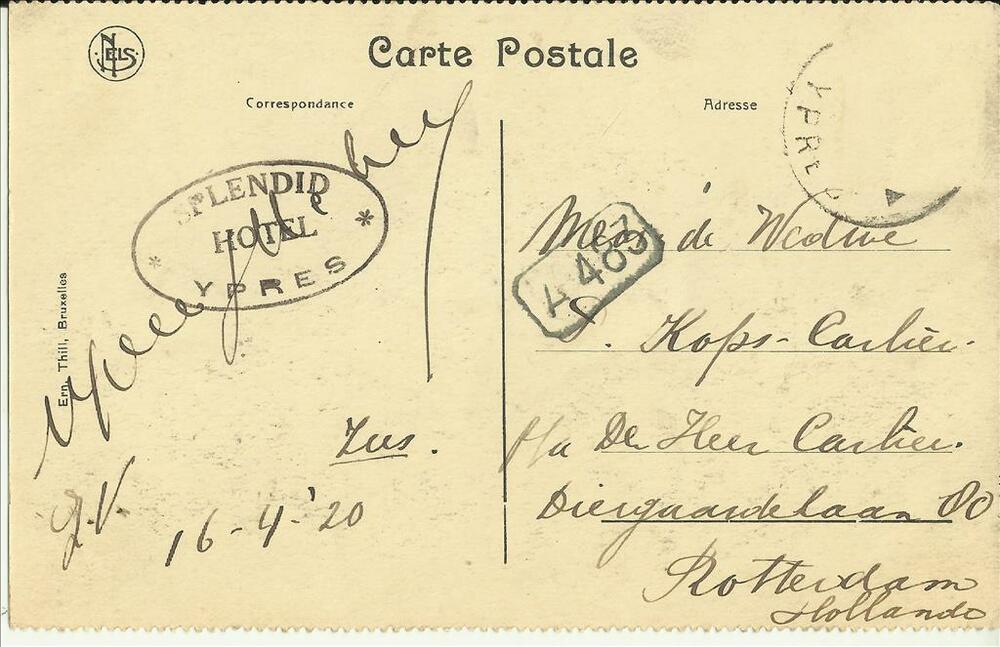 NELS
Carte Postale
Correspondance
Adresse
YPRES
SPLENDID
HOTEL
YPRES
Ern. Thill, Bruxelles
Zus.
16-4-'20
A 483
de Wedwe
P. Kops-Carlier.
p/a De Heer Carlier.
Diergaardelaan 80
Rotterdam
Hollande